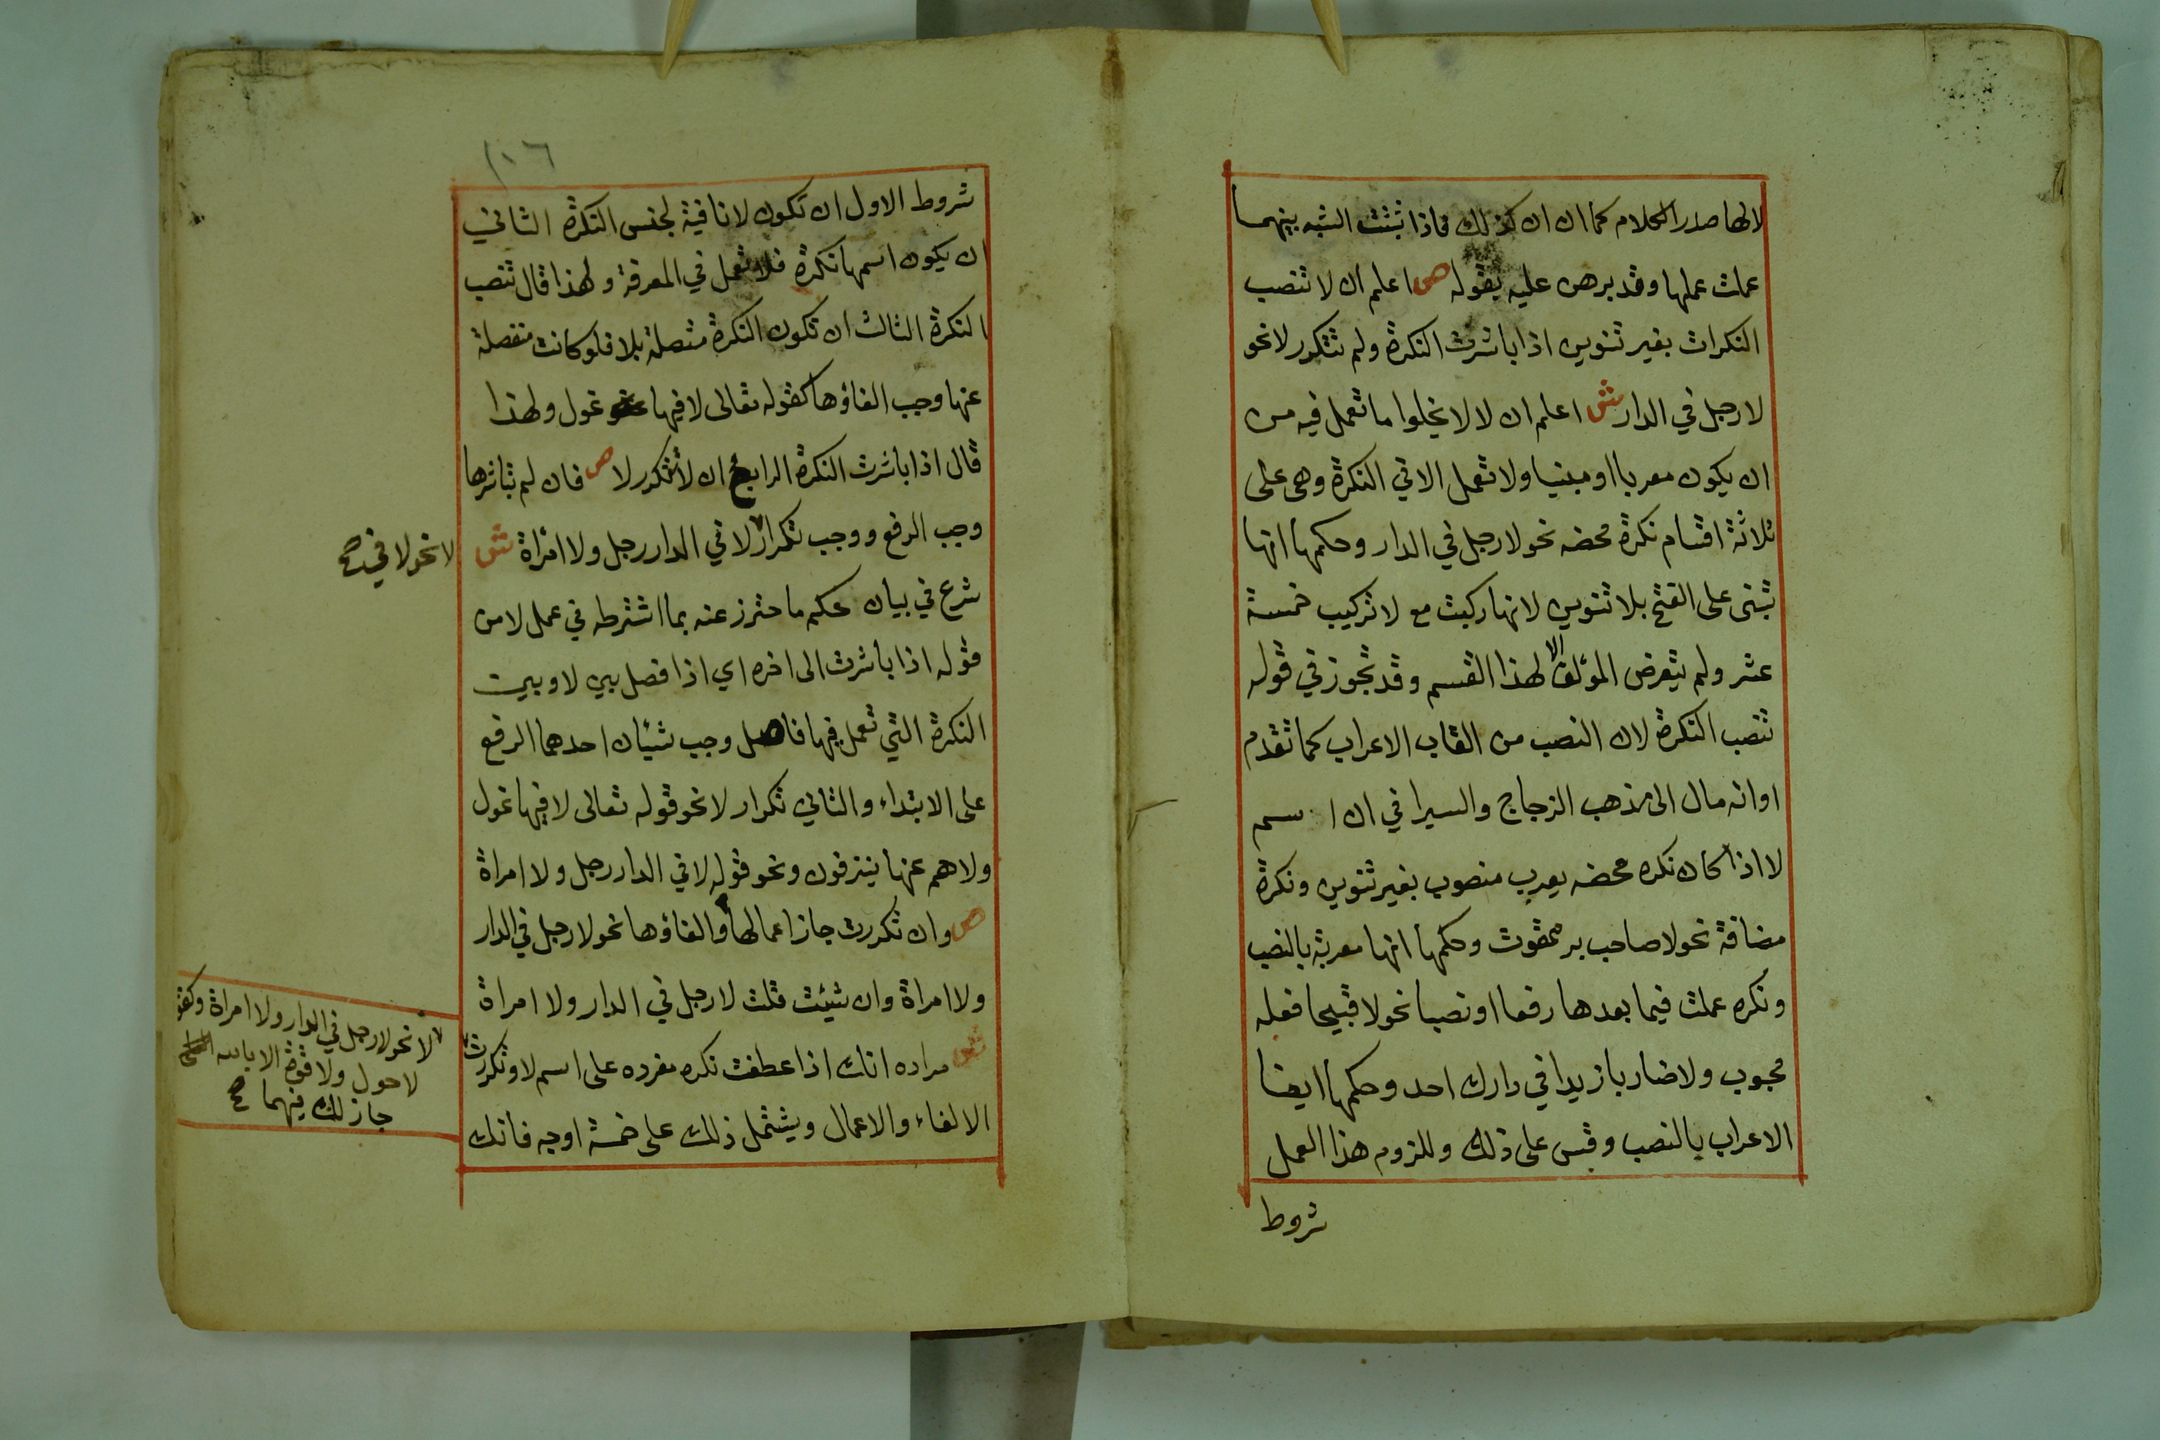 لالها صدر الكلام كما ان ان كذلك فاذا ثبتت الشبه بينهما
عملت عملها وقد برهن عليه بقوله ص اعلم ان لا تنصب
النكرات بغير تنوين اذا باشرت النكرة ولم تتكرر لا نحو
لا رجل في الدار ش اعلم ان لا لا يخلوا ما تعمل فيه من
ان يكون معربا او مبنيا ولا تعمل الا في النكرة وهي على
ثلاثة اقسام نكرة محضه نحو لا رجل في الدار وحكمها انها
تبنى على الفتح بلا تنوين لانها ركبت مع لا تركيب خمسة
عشر ولم يتعرض المؤلف الا لهذا القسم وقد تجوز في قوله
تنصب النكرة لان النصب من القاب الاعراب كما تقدم
او انه مال الى مذهب الزجاج والسيرافي ان اسم
لا اذا كان نكره محضه يعرب منصوب بغير تنوين ونكرة
مضافة نحو لا صاحب بر ممقوت وحكمها انها معربة بالنصب
ونكره عملت فيما بعدها رفعا او نصبا نحو لا قبيحا فعله
محبوب ولا ضاربا زيدا في دارك احد وحكمها ايضا
الاعراب بالنصب وقس على ذلك وللزوم هذا العمل
شروط
١٠٦
شروط الاول ان تكون لا نافية لجنس النكرة الثاني
ان يكون اسمها نكرة فلا تعمل في المعرفة ولهذا قال تنصب
النكرة الثالث ان تكون النكرة متصلة بلا فلو كانت منفصلة
عنها وجب الغاؤها كقوله تعالى لا فيها غول ولهذا
قال اذا باشرت النكرة الرابع ان لا تتكرر لا ص فان لم تباشرها
وجب الرفع ووجب تكرار لا في الدار رجل ولا امراة ش
لا نحو لا في صح
شرع في بيان حكم ما حترز عنه بما اشترطه في عمل لا من
قوله اذا باشرت الى اخره اي اذا فصل بين لا وبين
النكرة التي تعمل فيها فاصل وجب شيئان احدهما الرفع
على الابتداء والثاني تكرار لا نحو قوله تعالى لا فيها غول
ولا هم عنها ينزفون ونحو قوله لا في الدار رجل ولا امراة
ص وان تكررت جاز اعمالها والغاؤها نحو لا رجل في الدار
ولا امراة وان شيئت قلت لا رجل في الدار ولا امراة
ش مراده انك اذا عطفت نكره مفرده على اسم لا وتكررت
الالغاء والاعمال ويشتمل ذلك على خمسة اوجه فانك
لا نحو لا رجل في الدار ولا امراة
لا حول ولا قوة الا بالله
جاز لك فيهما صح